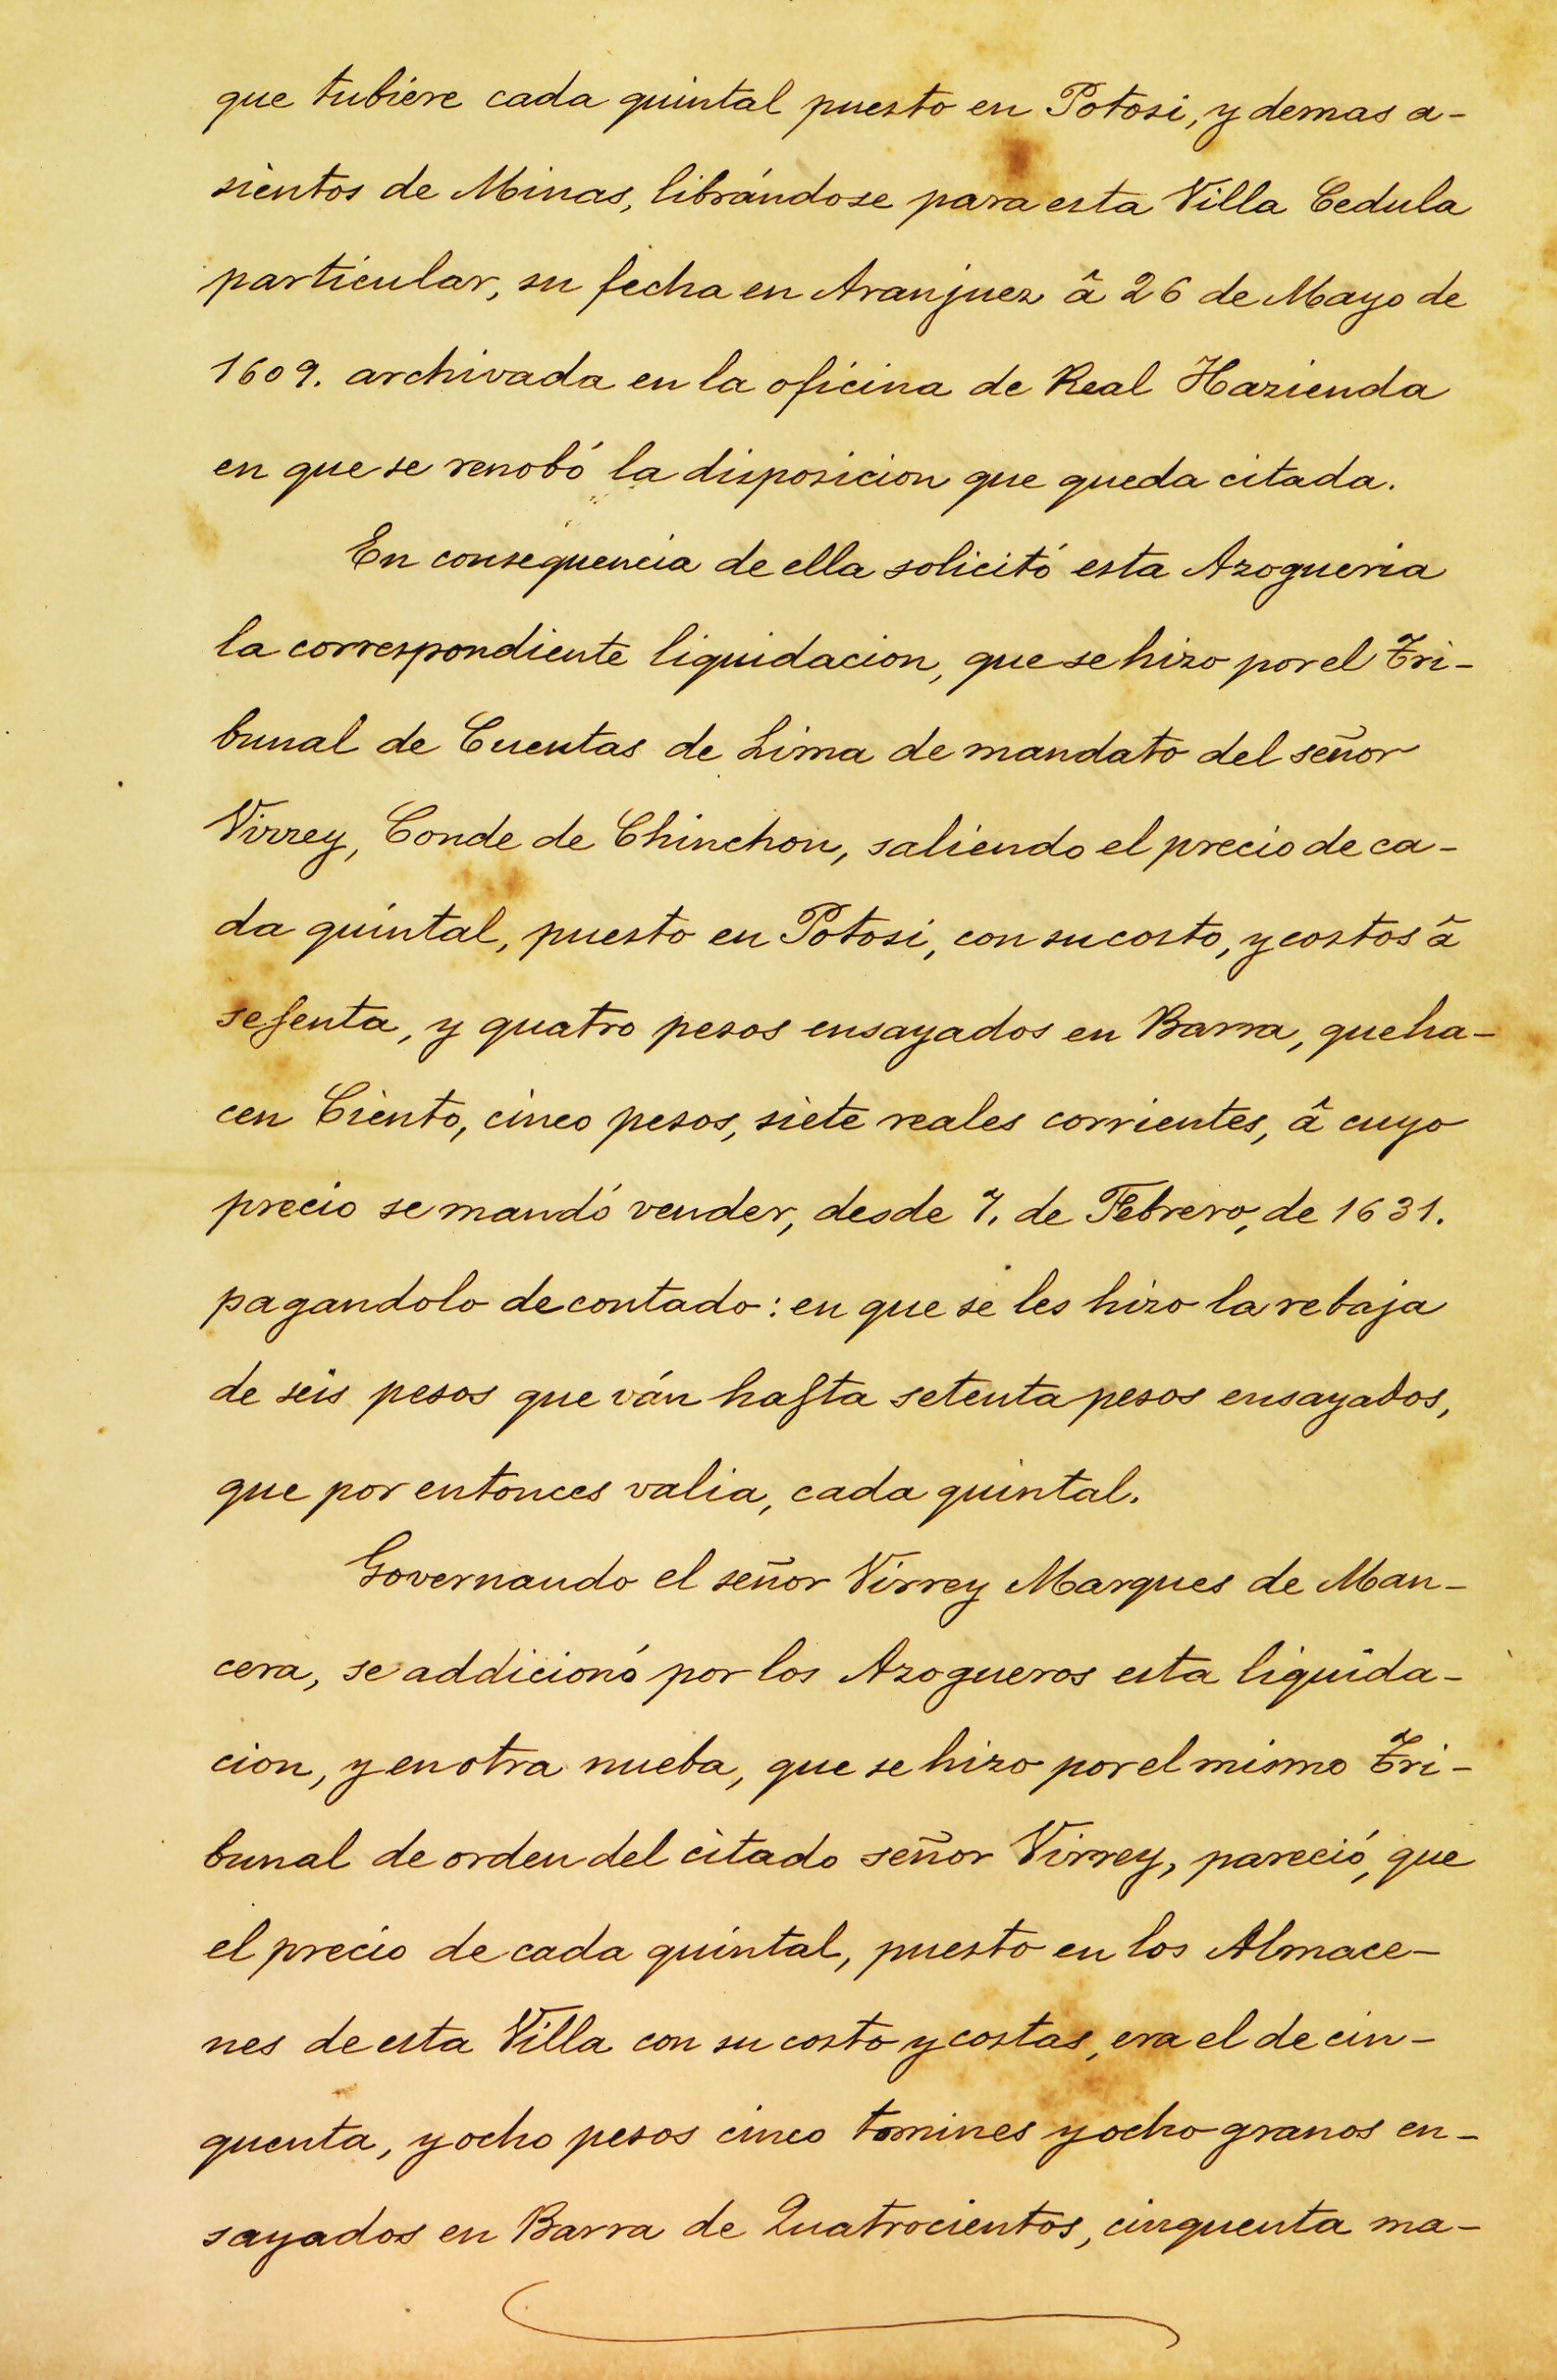 que tubiere cada quintal puesto en Potosi, y demas a-
sientos de Minas, librándose para esta Villa Cedula
particular, su fecha en Aranjuez â 26 de Mayo de
1609. archivada en la oficina de Real Hazienda
en que se renobó la disposicion que queda citada.
En consequencia de ella solicitó esta Azogueria
la correspondiente liquidacion, que se hizo por el Tri-
bunal de Cuentas de Lima de mandato del señor
Virrey, Conde de Chinchon, saliendo el precio de ca-
da quintal, puesto en Potosi, con su costo, y costos â
seſenta, y quatro pesos ensayados en Barra, que ha-
cen Ciento, cinco pesos, siete reales corrientes, â cuyo
precio se mandó vender, desde 7. de Febrero, de 1631.
pagandolo de contado: en que se les hizo la rebaja
de seis pesos que ván haſta setenta pesos ensayados,
que por entonces valia, cada quintal.
Governando el señor Virrey Marques de Man-
cera, se addicionó por los Azogueros esta liquida-
cion, y en otra nueba, que se hizo por el mismo Tri-
bunal de orden del citado señor Virrey, pareció, que
el precio de cada quintal, puesto en los Almace-
nes de esta Villa con su costo y costas, era el de cin-
quenta, y ocho pesos cinco tomines y ocho granos en-
sayados en Barra de Quatrocientos, cinquenta ma-